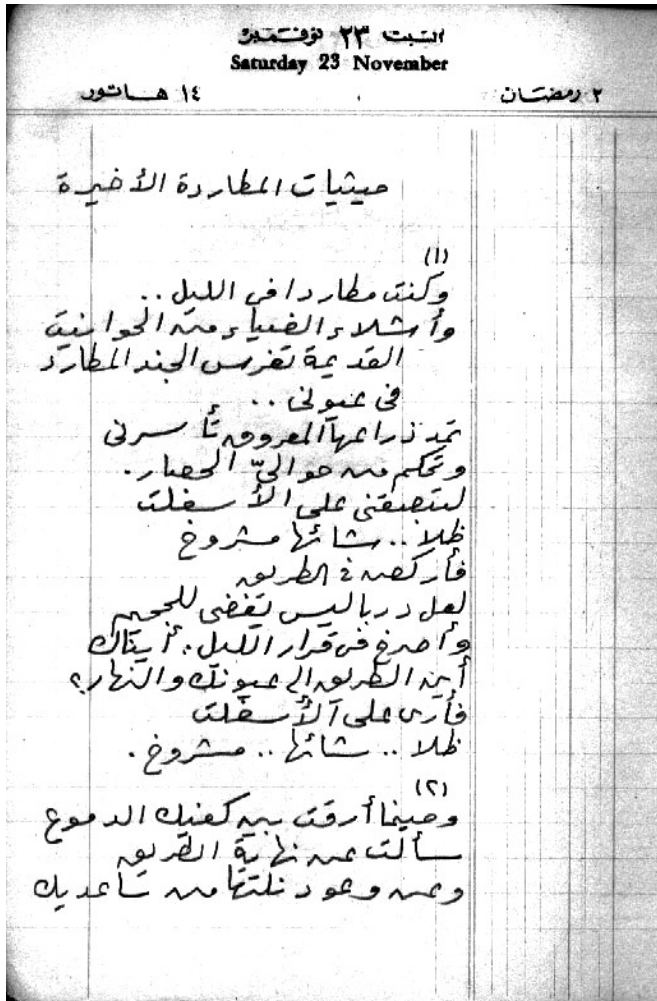 السبت ٢٣ نوفمبر
Saturday 23 November
٢ رمضان ١٤ هاتور
حيثيات المطاردة الأخيرة
(١)
وكنت مطاردا فى الليل ..
وأشلاء الضياء من الحوانيت
القديمة تغرس الجند المطارد
فى عيونى ..
تمد ذراعها المعروق تأسرنى
وتحكم من حوالىّ الحصار.
لتبصقنى على الأسفلت
ظلا .. شائها مشروخ
فأركض فى الطريق
لعل دربا ليس يفضى للجحيم
وأصرخ فى قرار الليل. أيناك
أين الطريق الى عيونك والنهار؟
فأرى على الأسفلت
ظلا .. شائها .. مشروخ.
(٢)
وحينما أرقت بين كفيك الدموع
سألت عن نهاية الطريق
وعن وعود نلتها من ساعديك